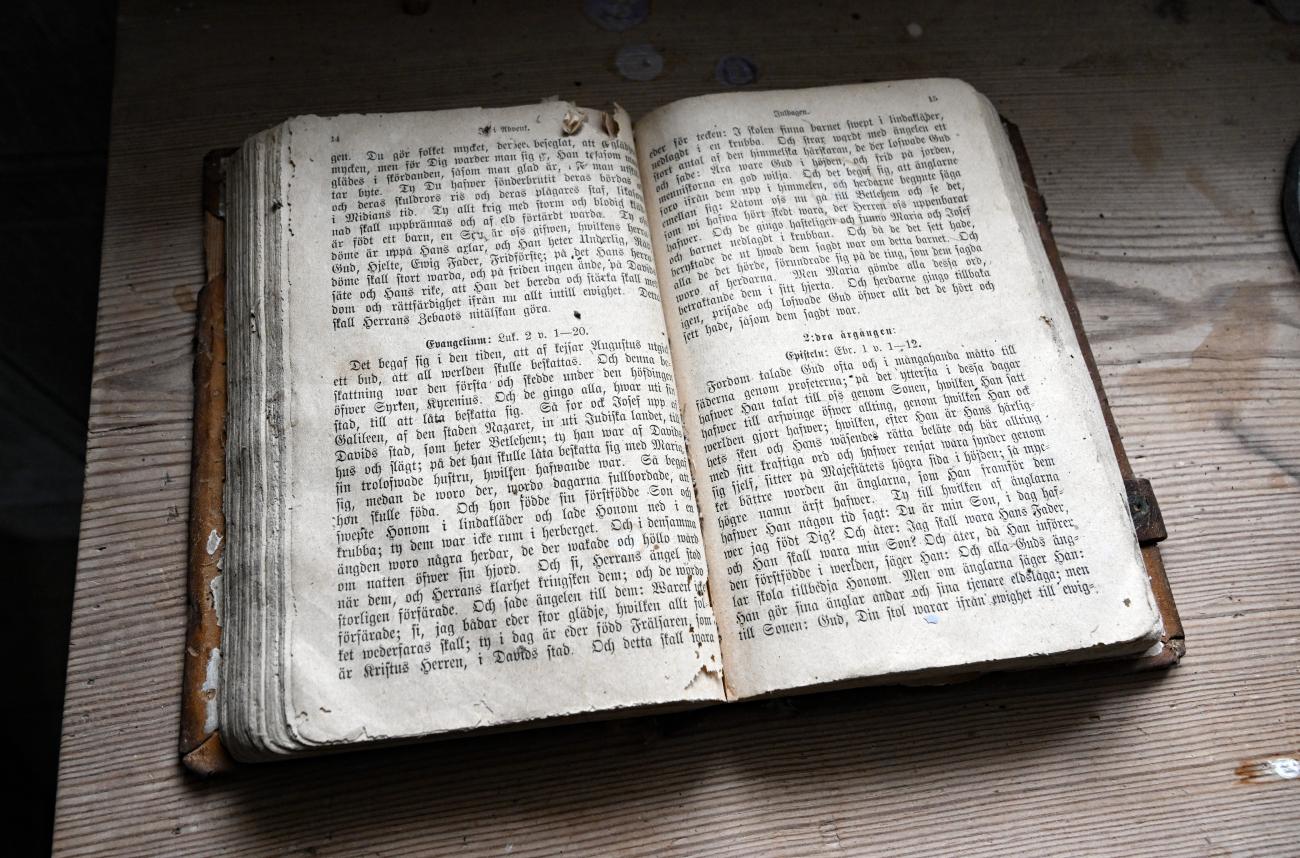 14
i Advent.
gen. Du gör folket mycket, beseglat, att glädjen
mycken, men för Dig warder man sig Han
glädes i skördanden, såsom man glad är, man
tar byte. Ty Du hafwer sönderbrutit deras bördas
och deras skuldrors ris och deras plågares staf, likasom
i Midians tid. Ty allt krig med storm och blodig
nad skall uppbrännas och af eld förtärdt warda. Ty oss
är födt ett barn, en Son är oss gifwen, hwilkens herra-
döme är uppå Hans axlar, och Han heter Underlig, Råd,
Gud, Hjelte, Ewig Fader, Fridsförste; på det Hans herra-
döme skall stort warda, och på friden ingen ände, på Davids
säte och Hans rike, att Han det bereda och stärka skall med
dom och rättfärdighet ifrån nu allt intill ewighet. Detta
skall Herrans Zebaots nitälskan göra.
Evangelium: Luk. 2 v. 1—20.
Det begaf sig i den tiden, att af kejsar Augustus utgick
ett bud, att all werlden skulle beskattas. Och denna be-
skattning war den första och skedde under den höfdingen
öfwer Syrien, Kyrenius. Och de gingo alla, hwar uti sin
stad, till att låta beskatta sig. Så for ock Josef upp af
Galileen, af den staden Nazaret, in uti Judiska landet, till
Davids stad, som heter Betlehem; ty han war af Davids
hus och slägt; på det han skulle låta beskatta sig med Maria,
sin trolofwade hustru, hwilken hafwande war. Så begaf
sig, medan de woro der, wordo dagarna fullbordade, att
hon skulle föda. Och hon födde sin förstfödde Son och
swepte Honom i lindakläder och lade Honom ned i en
krubba; ty dem war icke rum i herberget. Och i densamma
ängden woro några herdar, de der wakade och höllo wård
om natten öfwer sin hjord. Och si, Herrans ängel stod
när dem, och Herrans klarhet kringsken dem; och de wordo
storligen förfärade. Och sade ängelen till dem: Waren icke
förfärade; si, jag bådar eder stor glädje, hwilken allt fol-
ket wederfaras skall; ty i dag är eder född Frälsaren, som
är Kristus Herren, i Davids stad. Och detta skall wara
15
Juldagen.
eder för tecken: I skolen finna barnet swept i lindakläder,
nedlagdt i en krubba. Och strax wardt med ängelen ett
stort antal af den himmelska härskaran, de der lofwade Gud
och sade: Ära ware Gud i höjden, och frid på jorden,
menniskorna en god wilja. Och det begaf sig, att änglarne
foro ifrån dem upp i himmelen, och herdarne begynte säga
emellan sig: Låtom oss nu gå till Betlehem och se det,
som wi hafwa hört skedt wara, det Herren oss uppenbarat
hafwer. Och de gingo hasteligen och funno Maria och Josef
och barnet nedlagdt i krubban. Och då de det sett hade,
beryktade de ut hwad dem sagdt war om detta barnet. Och
alla de det hörde, förundrade sig på de ting, som dem sagda
woro af herdarna. Men Maria gömde alla dessa ord,
betraktande dem i sitt hjerta. Och herdarne gingo tillbaka
igen, prisade och lofwade Gud öfwer allt det de hört och
sett hade, såsom dem sagdt war.
2:dra årgången:
Episteln: Ebr. 1 v. 1—12.
Fordom talade Gud ofta och i mångahanda måtto till
fäderna genom profeterna; på det yttersta i dessa dagar
hafwer Han talat till oss genom Sonen, hwilken Han satt
hafwer till arfwinge öfwer allting, genom hwilken Han ock
werlden gjort hafwer; hwilken, efter Han är Hans härlig-
hets sken och Hans wäsendes rätta beläte och bär allting
med sitt kraftiga ord och hafwer rensat wåra synder genom
sig sjelf, sitter på Majestätets högra sida i höjden; så myc-
ket bättre worden än änglarna, som Han framför dem
högre namn ärft hafwer. Ty till hwilken af änglarna
hafwer Han någon tid sagt: Du är min Son, i dag haf-
wer jag födt Dig? Och åter: Jag skall wara Hans Fader,
och Han skall wara min Son? Och åter, då Han införer
den förstfödde i werlden, säger Han: Och alla Guds äng-
lar skola tillbedja Honom. Men om änglarna säger Han:
Han gör sina änglar andar och sina tjenare eldslåga; men
till Sonen: Gud, Din stol warar ifrån ewighet till ewig-